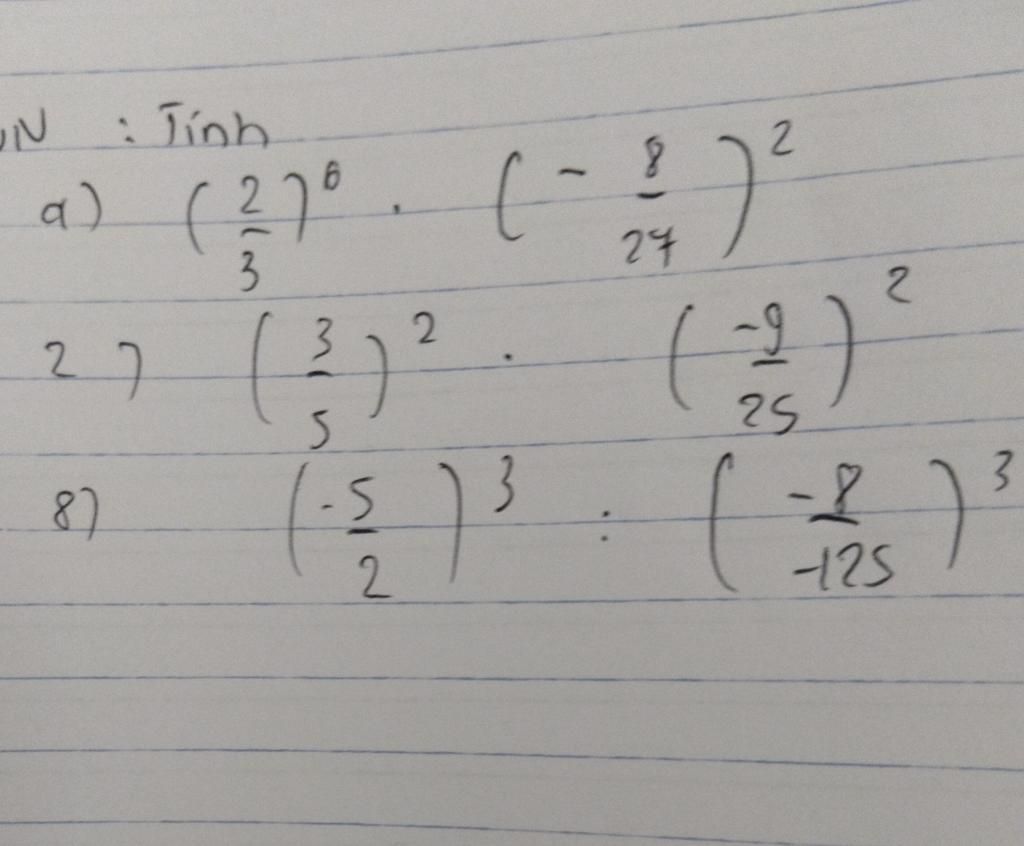 : Tính
a) (2/3)^6 . (- 8/27)^2
2) (3/5)^2 . (-9/25)^2
8) (-5/2)^3 : (-8/-125)^3